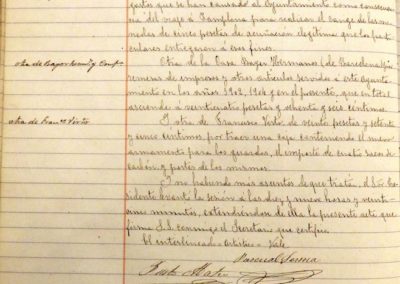 gastos que se han causado al Ayuntamiento como consecuen
cia del viaje a Pamplona para realizar el cange de las mo
nedas de cinco pesetas de acuñacion ilegítima que los parti
culares entregaron á esos fines.
otra de Bayer Herm.s y Comp.a
Otra de la Casa Bayer Hermanos (de Barcelona)
de impresos y otros artículos servidos á este Ayunta
miento en los años 1902, 1904 y en el presente, que en total
asciende á veinticuatro pesetas y ochenta y seis céntimos.
otra de Fran.co
Y otra de Francisco de veinte pesetas y setenta
y cinco céntimos, por traer una caja conteniendo el nuevo
armamento para los guardas, el importe de cuatro sacos de
carbón, y portes de los mismos.
Y no habiendo más asuntos de que tratar, el Sr. Pre
sidente levantó la sesion á las diez y nueve horas y veinte
minutos, extendiéndose de ella la presente acta que
firma S.S. conmigo el Secretario que certifico.
El interlineado = Artículos = Vale.
Pascual